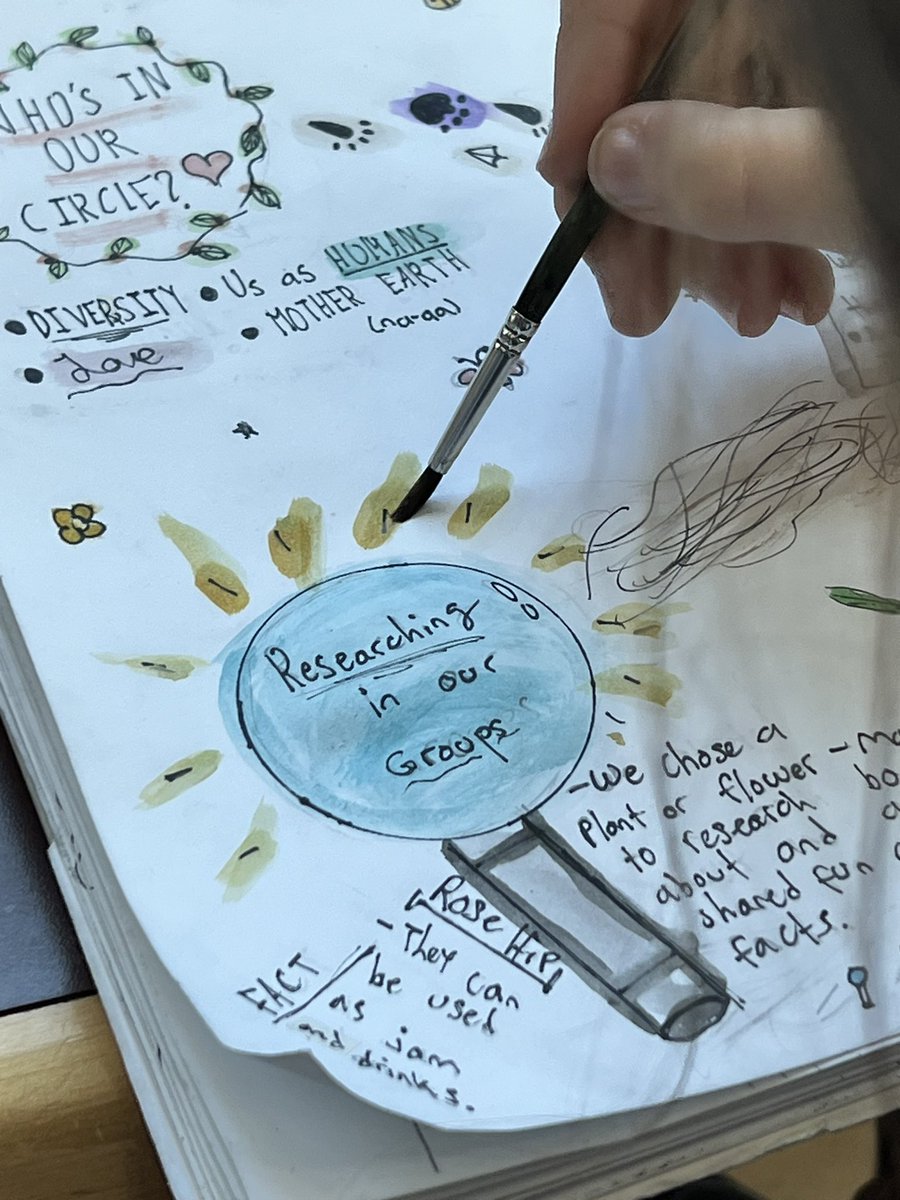 WHO'S IN
OUR
CIRCLE?
• DIVERSITY
• Love
• Us as HUMANS
• MOTHER EARTH
(na-aa)
Researching
in our
Groups
-We chose a
plant or flower
to research
about and
shared fun
facts.
Rose Hip
FACT
- They can
be used
as jam
and drinks.